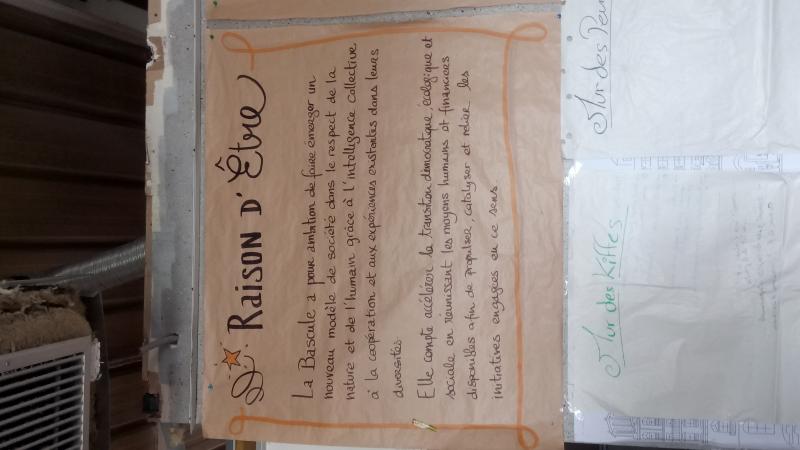 RAISON D'Être
La Bascule a pour ambition de faire émerger un
nouveau modèle de société dans le respect de la
nature et de l'humain grâce à l'intelligence collective
à la coopération et aux expériences existantes dans leurs
diversités
Elle compte accélérer la transition démocratique, écologique et
sociale en réunissant les moyens humains et financiers
disponibles afin de propulser, catalyser et relier les
initiatives engagées en ce sens
Mur des Kiffes
Mur des